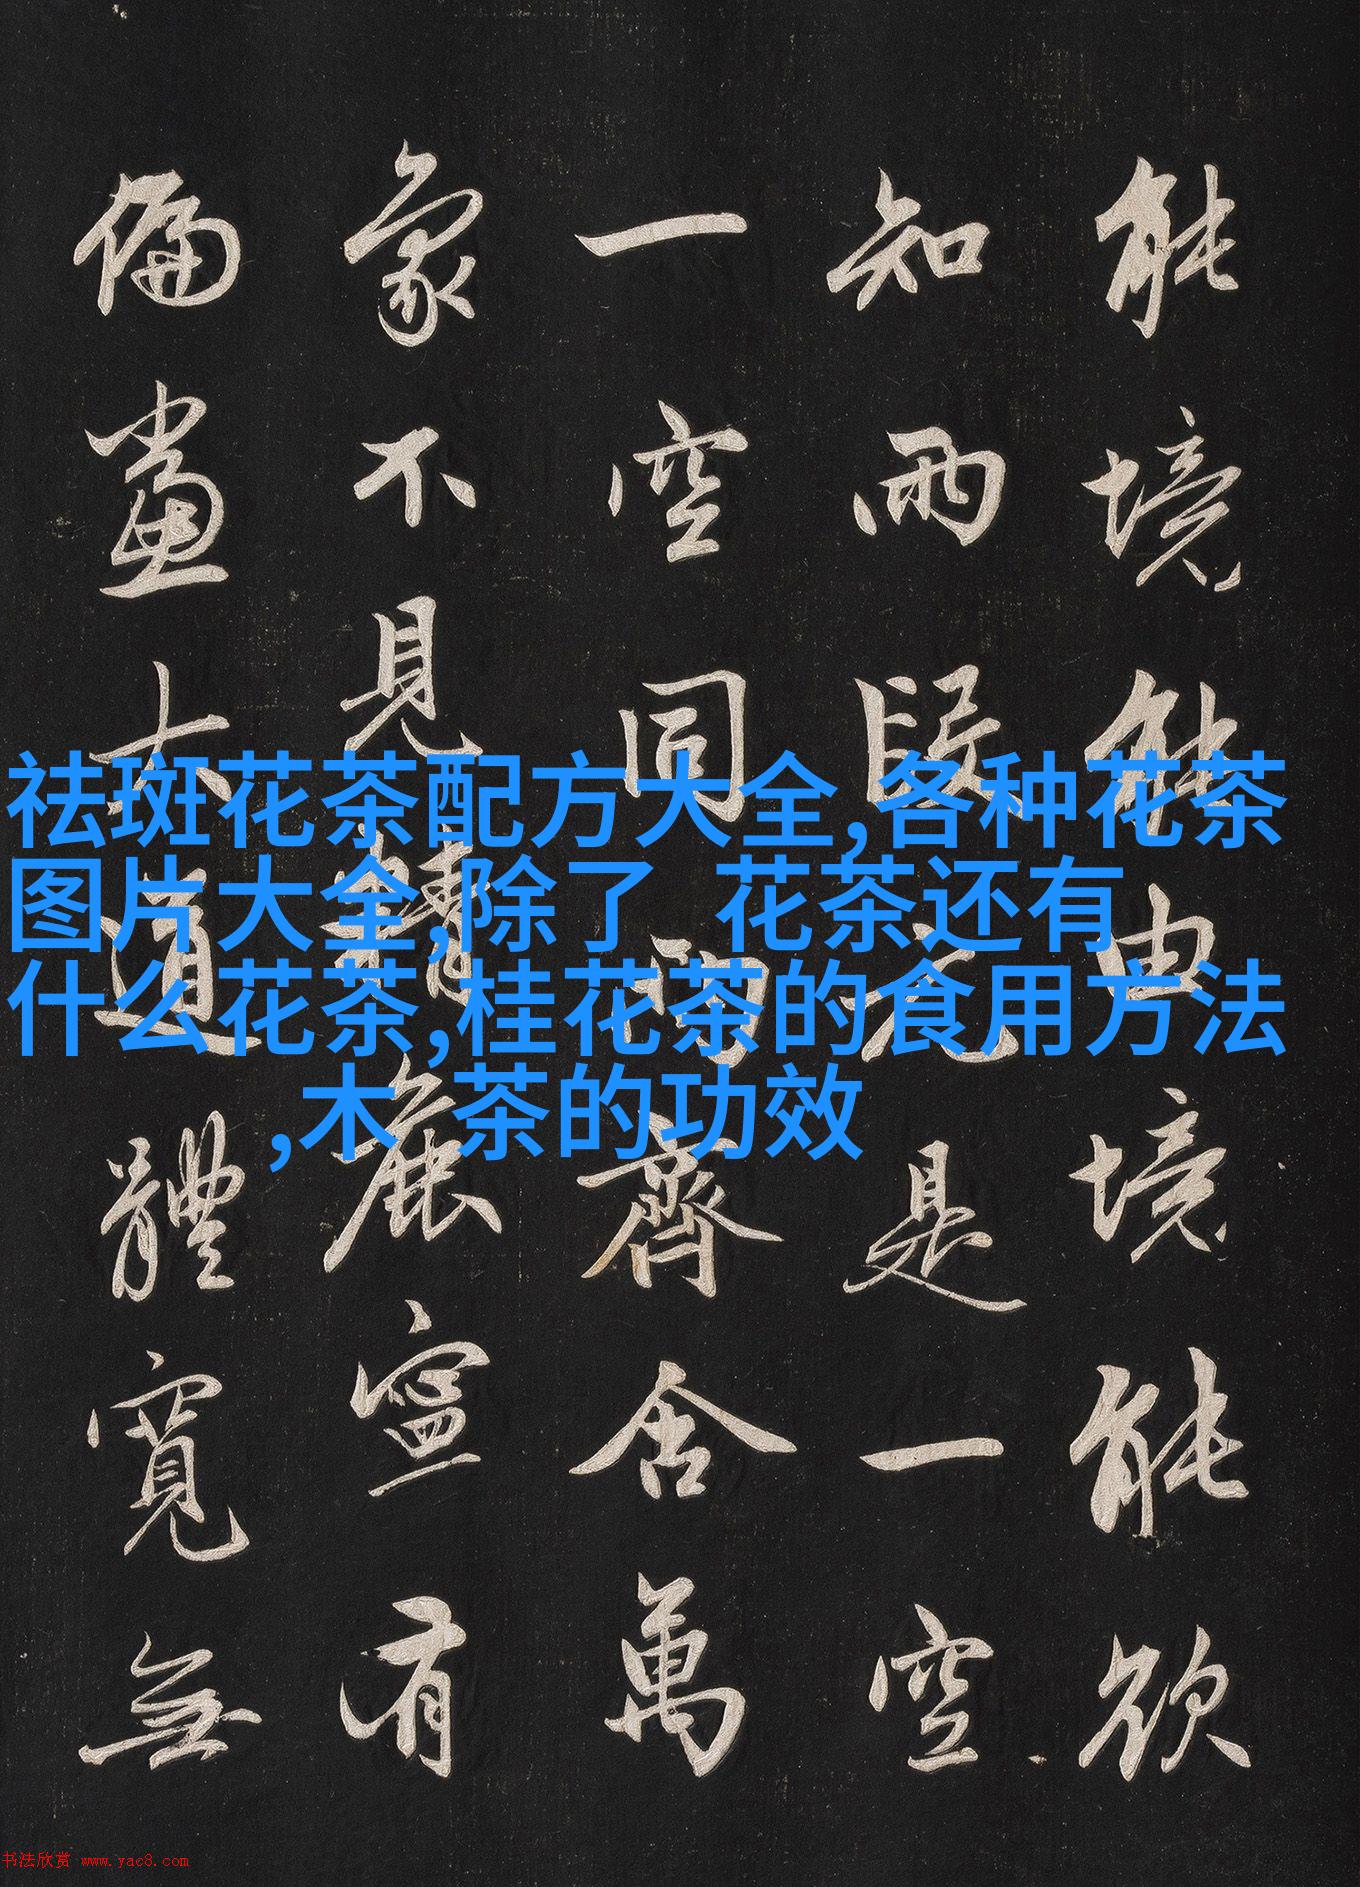 能境能由境能欲
知兩段元是一空
一空同兩齊含萬
象不見精麁寧有
偏黨大道體寬無
祛斑花茶配方大全,各种花茶
图片大全,除了 花茶还有
什么花茶,桂花茶的食用方法
,木 茶的功效
书法欣赏 www.yac8.com